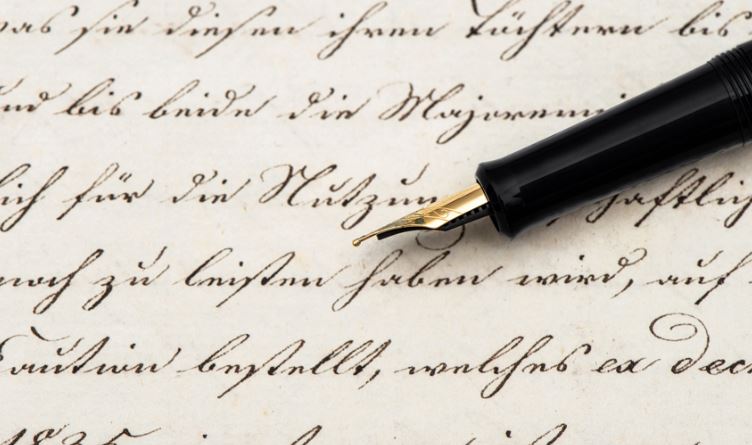 was sie diesen ihren Töchtern bis
und bis beide die Majorenni
lich für die Nutzun schaftlich
noch zu leisten haben wird, auf
Caution bestellt, welches ex decr
1835